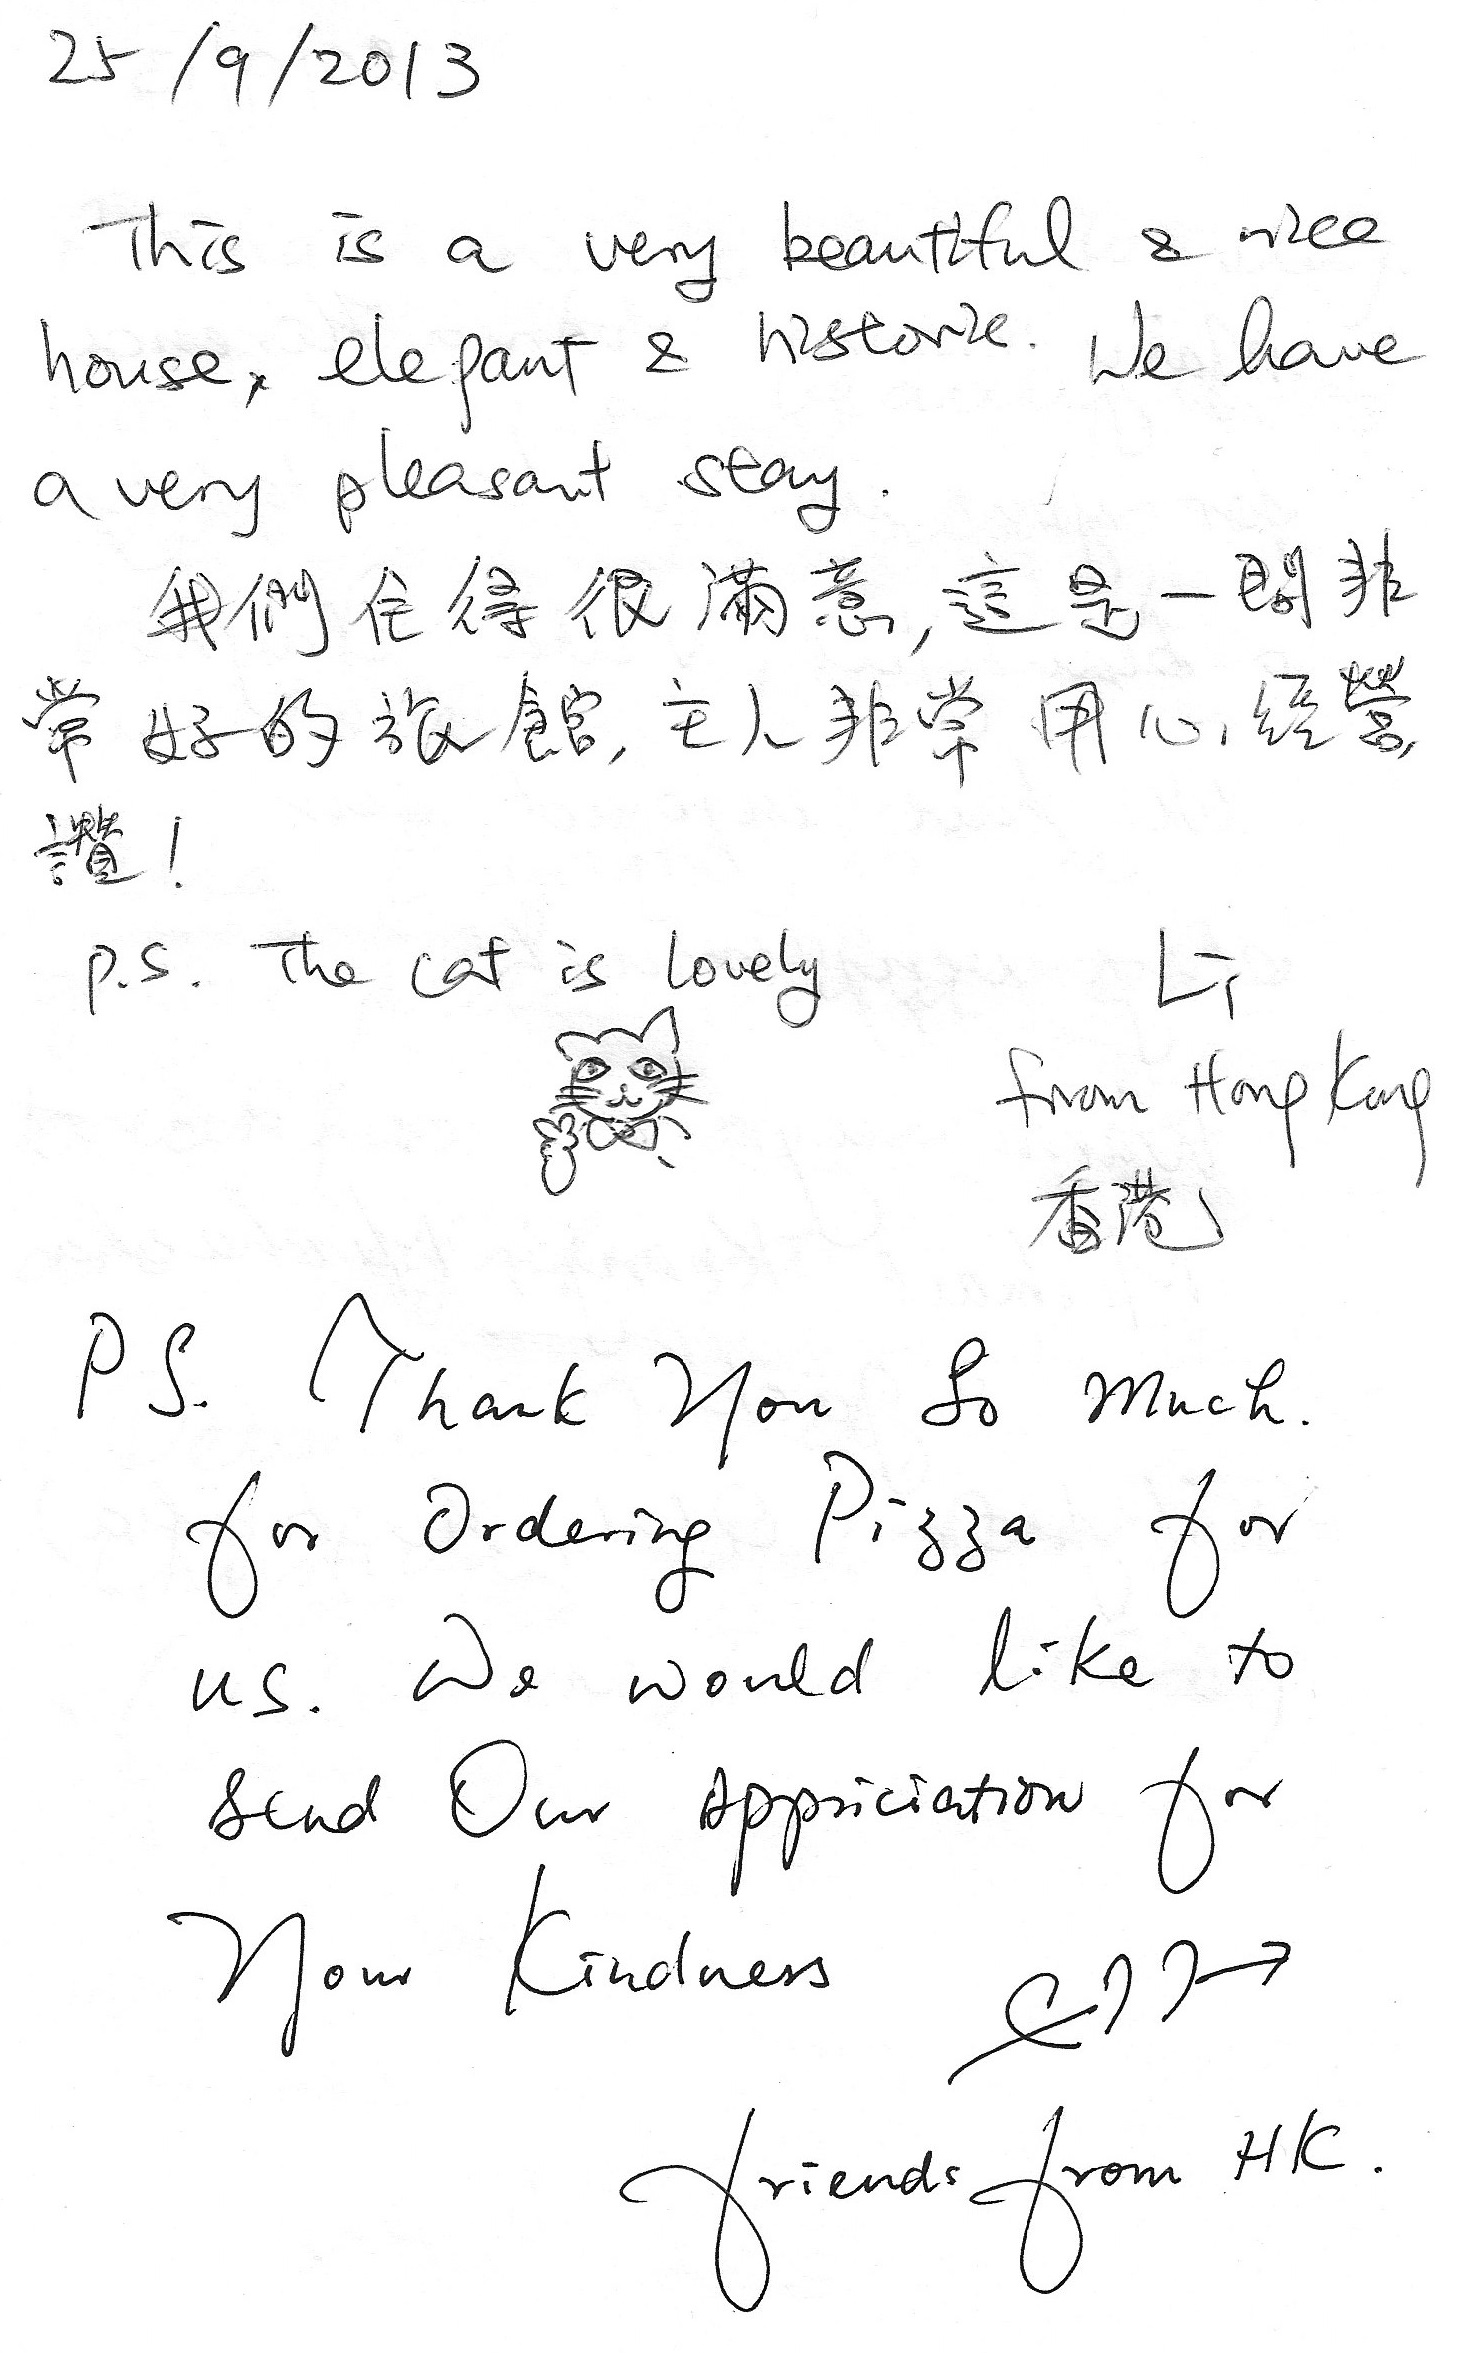 25/9/2013
This is a very beautiful & nice
house, elegant & historic. We have
a very pleasant stay.
我們住得很滿意,這是一間非
常好的旅館,主人非常用心經營,
讚!
P.S. The cat is lovely
Li
from Hong Kong
香港
PS. Thank You So Much.
for Ordering Pizza for
us. We would like to
send Our Appriciation for
Your Kindness
friends from HK.